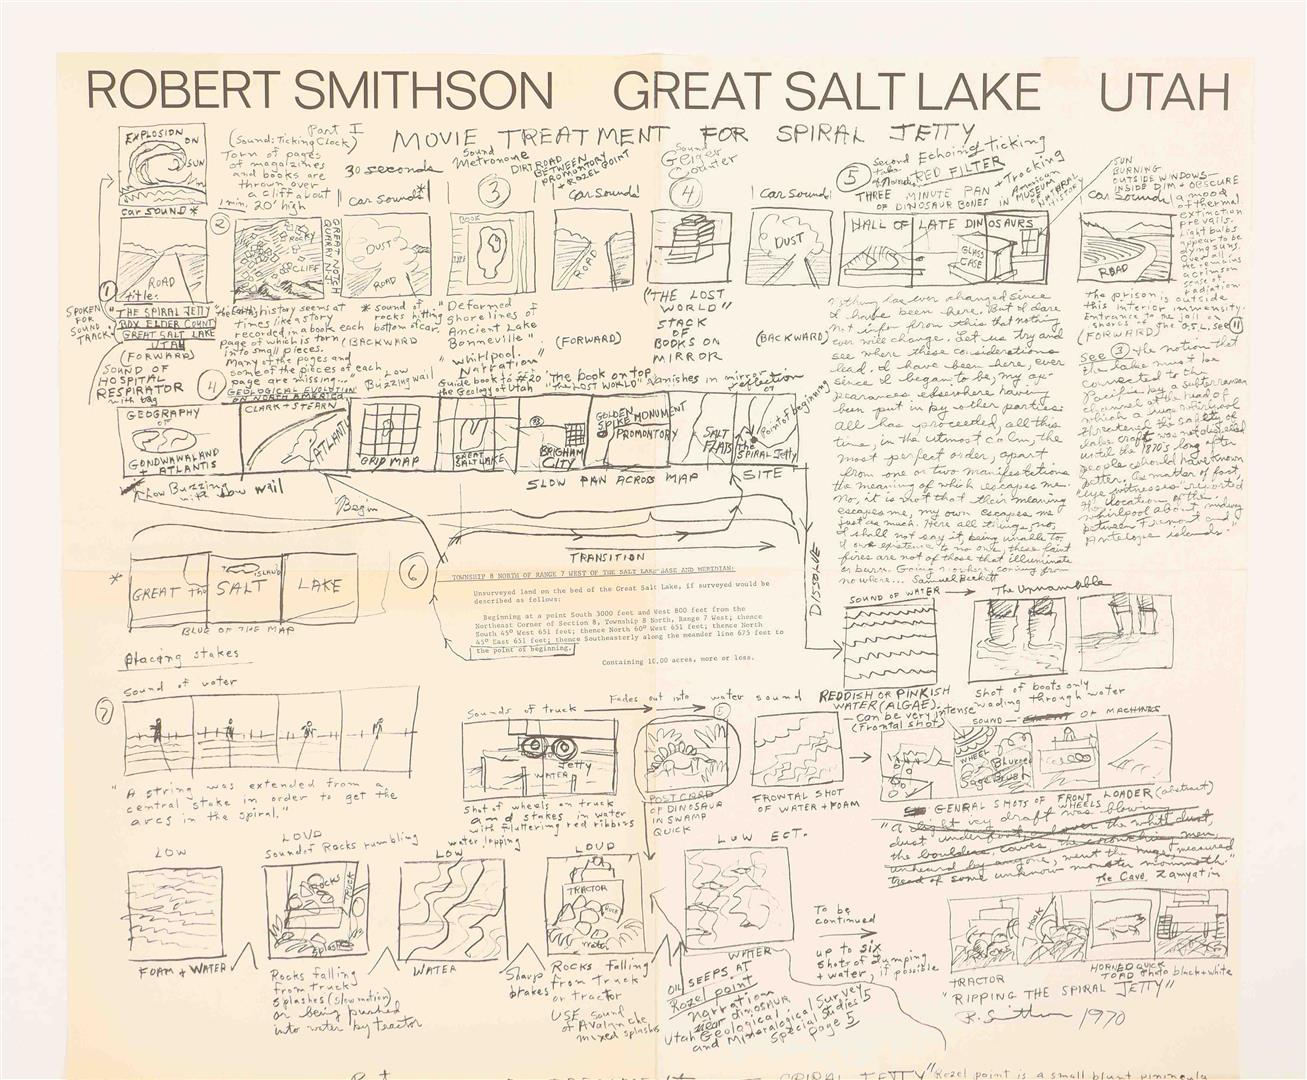 ROBERT SMITHSON GREAT SALT LAKE UTAH
MOVIE TREATMENT FOR SPIRAL JETTY
Part I
EXPLOSION ON SUN
car sound*
(Sound: Ticking Clock)
Torn of pages
of magazines
and books are
thrown over
a cliff about
20' high
30 seconds
Car sound*
Sound
Metronome
DIRT ROAD
BETWEEN
PROMONTORY POINT
+ ROZEL
3
Car Sound
Sound
Geiger
Counter
4
Car Sound
5
Echoing ticking
RED FILTER
THREE MINUTE PAN
OF DINOSAUR BONES
+ Tracking
IN AMERICAN
MUSEUM
OF NATURAL
HISTORY
SUN
BURNING
OUTSIDE WINDOWS
INSIDE DIM + OBSCURE
Car Sound
a mood
of thermal
extinction
prevails.
Light bulbs
appear to be
dying suns.
Over all
the remains
a crimson
sense of
radiation
1
ROAD
title:
SPOKEN
FOR
SOUND
TRACK
"THE SPIRAL JETTY
BOX ELDER COUNTY
GREAT SALT LAKE
UTAH
(FORWARD)
SOUND OF
HOSPITAL
RESPIRATOR
with bag
2
ROCKY
CLIFF
GREAT NOTCH
QUARRY N.J.
"the Earth's history seems at
times like a story
recorded in a book each
page of which is torn
into small pieces.
Many of the pages and
some of the pieces of each
page are missing...
GEOLOGICAL EVOLUTION
OF NORTH AMERICA
DUST
ROAD
* sound of
rocks hitting
bottom of car.
(BACKWARD)
BOOK
Deformed
shorelines of
Ancient Lake
Bonneville
"whirlpool"
Narration
Guide book to
the Geology of Utah #20
ROAD
(FORWARD)
("THE LOST
WORLD"
STACK
OF
BOOKS ON
MIRROR
The book on top,
"the LOST WORLD" vanishes in mirror
reflection
DUST
(BACKWARD)
HALL OF LATE DINOSAURS
GLASS
CASE
Nothing has ever changed since
I have been here. But I dare
not infer from this that nothing
ever will change. Let us try and
see where these considerations
lead. I have been here, ever
since I began to be, my ap-
pearances elsewhere having
been put in by other parties.
All has proceeded, all this
time, in the utmost calm, the
most perfect order, apart
from one or two manifestations
the meaning of which escapes me.
No, it is not that their meaning
escapes me, my own escapes me
just as much. Here all things, no,
I shall not say it, being unable to.
I owe existence to no one, these faint
fires are not of those that illuminate
or burn. Going nowhere, coming from
nowhere... Samuel Beckett
The Unnamable
ROAD
The prison is outside
this interior immensity.
(FORWARD)
See 3
The notion that
the lake must be
connected to the
Pacific by a subterranean
channel at the head of
which a huge whirlpool
threatened the safety of
lake craft was not dispelled
until the 1870's long after
people should have known
better. As matter of fact,
"eye witnesses" reported
the location of the
whirlpool about midway
between Fremont and
Antelope islands."
4
Low
Buzzing wail
GEOGRAPHY
OF
GONDWANALAND
+ ATLANTIS
CLARK + STEARN
ATLANTIS
GRID MAP
GREAT
SALT LAKE
BRIGHAM
CITY
GOLDEN
SPIKE MONUMENT
PROMONTORY
SALT
FLATS
The
SPIRAL Jetty
Point of beginning
Low Buzzing
with low wail
SLOW PAN ACROSS MAP
SITE
Begin
TRANSITION
DISSOLVE
*
GREAT The SALT LAKE
ISLAND
BLUE OF THE MAP
6
TOWNSHIP 8 NORTH OF RANGE 7 WEST OF THE SALT LAKE BASE AND MERIDIAN:
Unsurveyed land on the bed of the Great Salt Lake, if surveyed would be
described as follows:
Beginning at a point South 3000 feet and West 800 feet from the
Northeast Corner of Section 8, Township 8 North, Range 7 West; thence
South 45° West 651 feet; thence North 60° West 651 feet; thence North
45° East 651 feet; thence Southeasterly along the meander line 675 feet to
the point of beginning.
Containing 10.00 acres, more or less.
SOUND OF WATER
REDDISH OR PINKISH
WATER (ALGAE).
— can be very intense
(Frontal shot)
Shot of boots only
wading through water
Placing stakes
Sound of water
7
"A string was extended from a
central stake in order to get the
arcs in the spiral."
Sounds of truck
Fades out into water sound
Jetty
WATER
Shot of wheels on truck
and stakes in water
with fluttering red ribbons
water lapping
5
POST CARD
OF DINOSAUR
IN SWAMP
QUICK
FRONTAL SHOT
OF WATER + FOAM
SOUND — OF MACHINES
WHEEL
Blurred
GENERAL SHOTS OF FRONT LOADER (abstract)
WHEELS
"A slight dry draft was blowing
the boulders, caves,
unheard by anyone, went the measured
tread of some unknown monster mammoth."
The Cave, Zamyatin
LOW
FOAM + WATER
LOUD
Sound of Rocks rumbling
ROCKS
TRUCK
splash
Rocks falling
from truck
splashes (slow motion)
or being pushed
into water by tractor
LOW
WATER
Sharp
brakes
LOUD
TRACTOR
Rocks falling
from Truck
or tractor
USE sound
of Avalanche
mixed splashes
LOW ECT.
WATER
OIL SEEPS AT
Rozel point
narration
near dinosaur
Utah Geological Survey
and Mineralogical Studies 5
Special Page 5
To be
continued
up to six
shots of dumping
+ water, if possible
HOOK
TRACTOR
HORNED QUICK
TOAD Photo black + white
"RIPPING THE SPIRAL JETTY"
R. Smithson 1970
SPIRAL JETTY "Rozel point is a small blunt peninsula